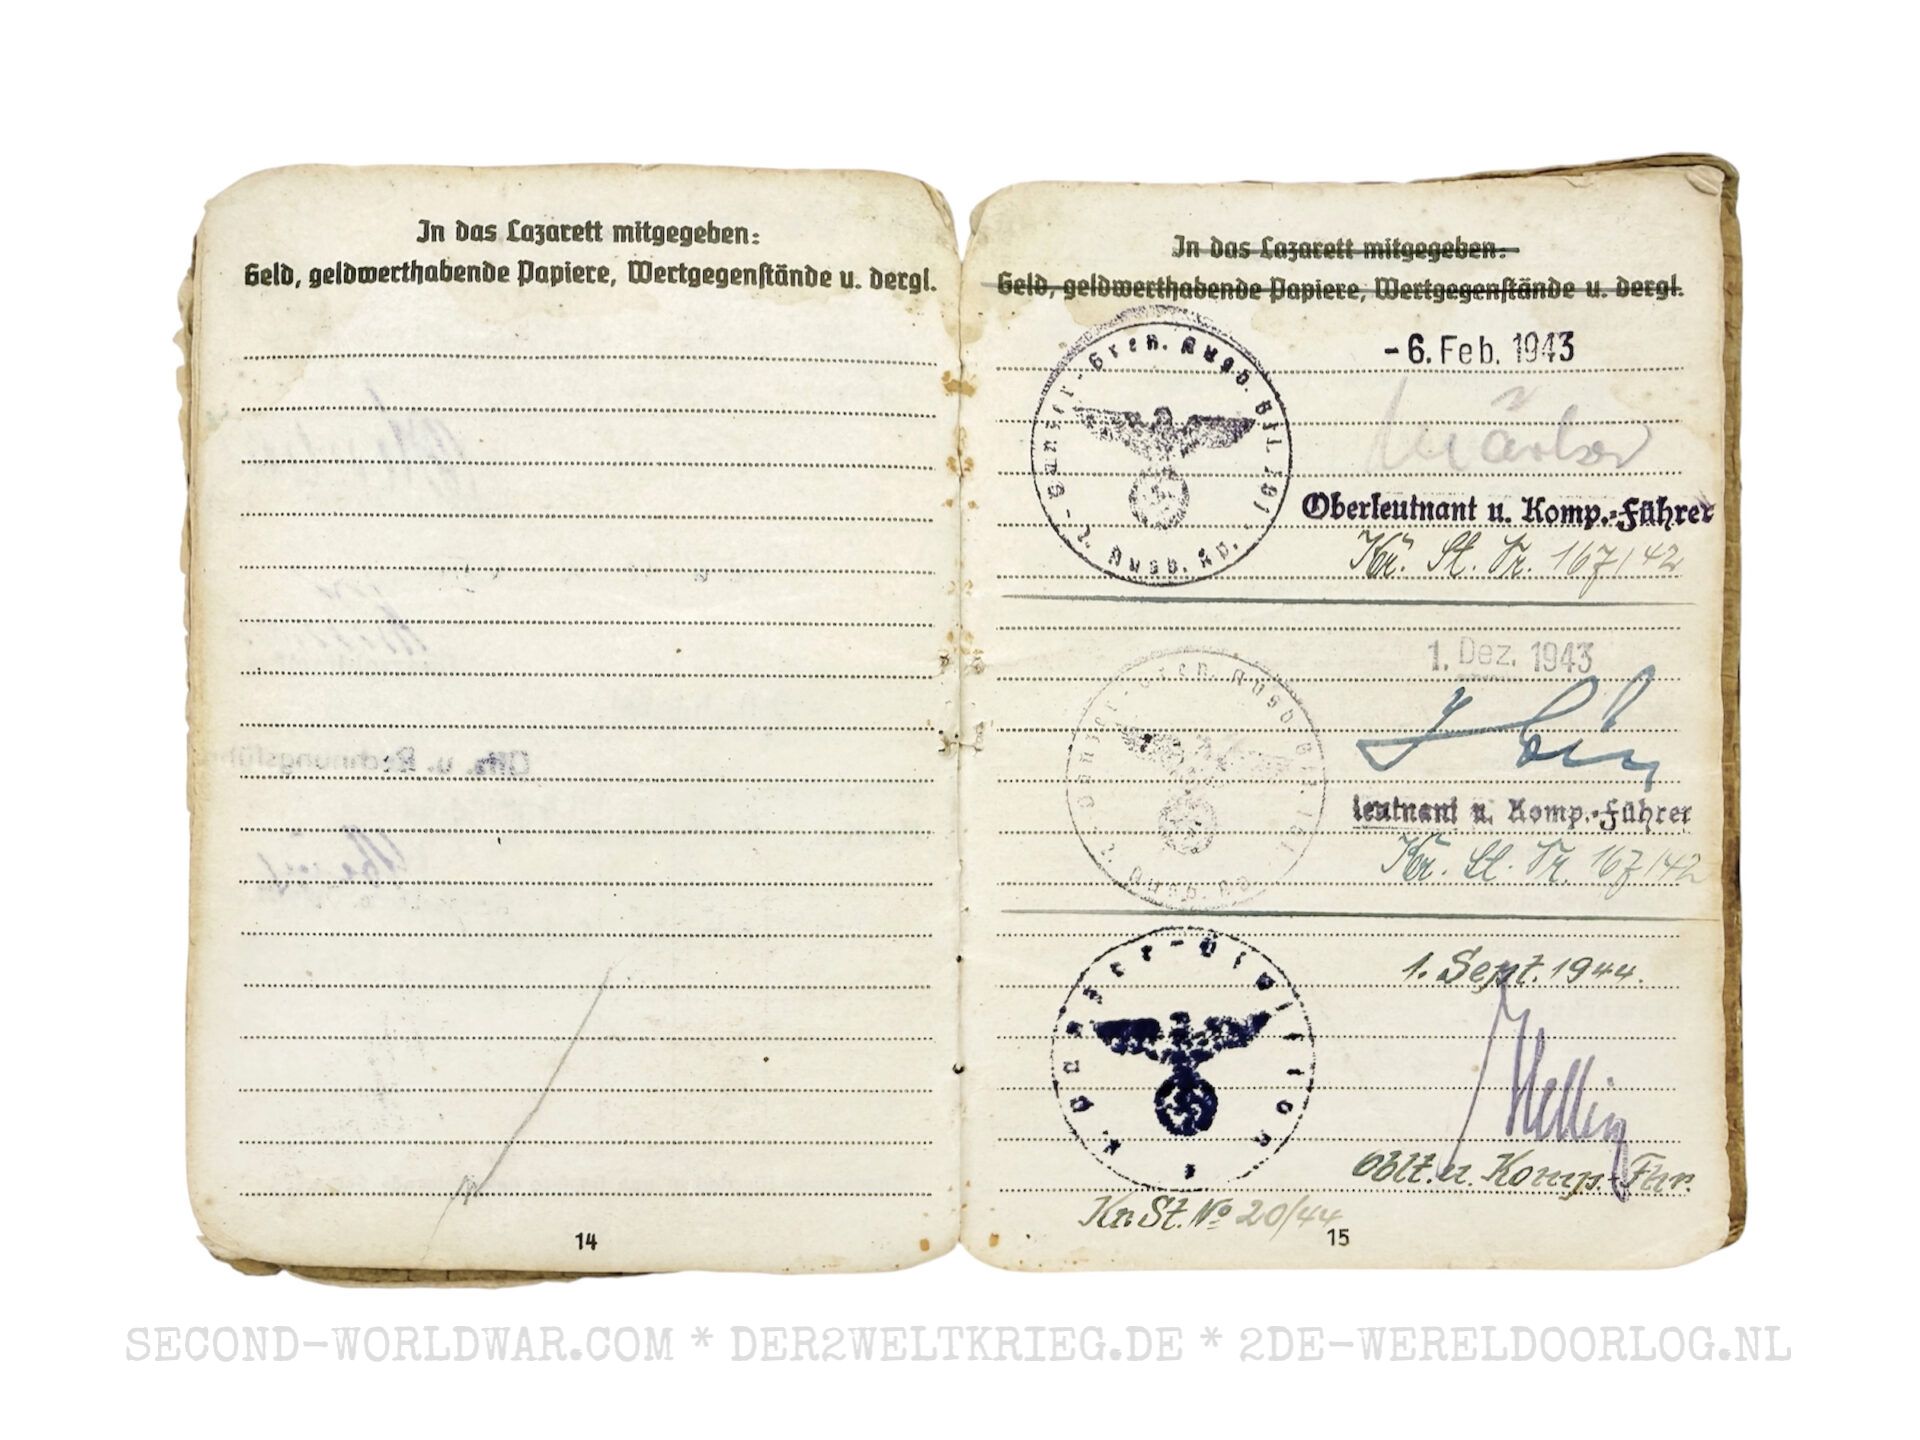 In das Lazarett mitgegeben:
Geld, geldwerthabende Papiere, Wertgegenstände u. dergl.
14
In das Lazarett mitgegeben:
Geld, geldwerthabende Papiere, Wertgegenstände u. dergl.
-6. Feb. 1943
Panzer-Gren. Ausb. Btl.
2. Ausb. Kp.
Oberleutnant u. Komp.-Führer
Kr. St. Nr. 167/42
1. Dez. 1943
Panzer-Gren. Ausb. Btl.
2. Ausb. Kp.
Leutnant u. Komp.-Führer
Kr. St. Nr. 167/42
1. Sept. 1944.
Panzer-Division
Oblt. u. Komp.-Fhr.
Kr. St. No 20/44
15
SECOND-WORLDWAR.COM * DER2WELTKRIEG.DE * 2DE-WERELDOORLOG.NL